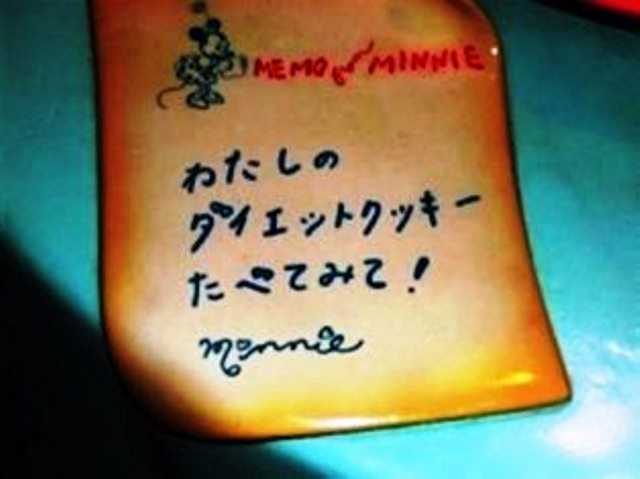 MEMO for MINNIE
わたしの
ダイエットクッキー
たべてみて!
Minnie